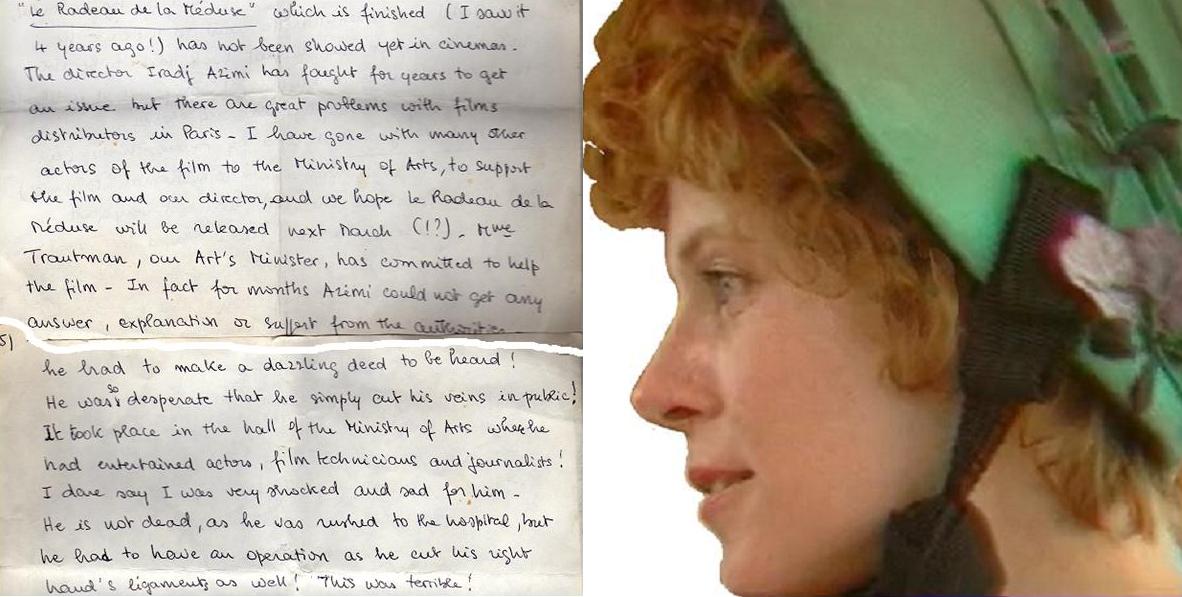 "Le Radeau de la Méduse" which is finished (I saw it
4 years ago!) has not been showed yet in cinemas.
The director Iradj Azimi has fought for years to get
an issue but there are great problems with films
distributors in Paris - I have gone with many other
actors of the film to the Ministry of Arts, to support
the film and our director, and we hope Le Radeau de la
Méduse will be released next March (!?). Mme
Trautman, our Art's Minister, has committed to help
the film - In fact for months Azimi could not get any
answer, explanation or support from the authorities
5)
he had to make a dazzling deed to be heard!
He was so desperate that he simply cut his veins in public!
It took place in the hall of the Ministry of Arts where he
had entertained actors, film technicians and journalists!
I dare say I was very shocked and sad for him -
He is not dead, as he was rushed to the hospital, but
he had to have an operation as he cut his right
hand's ligaments as well! This was terrible!